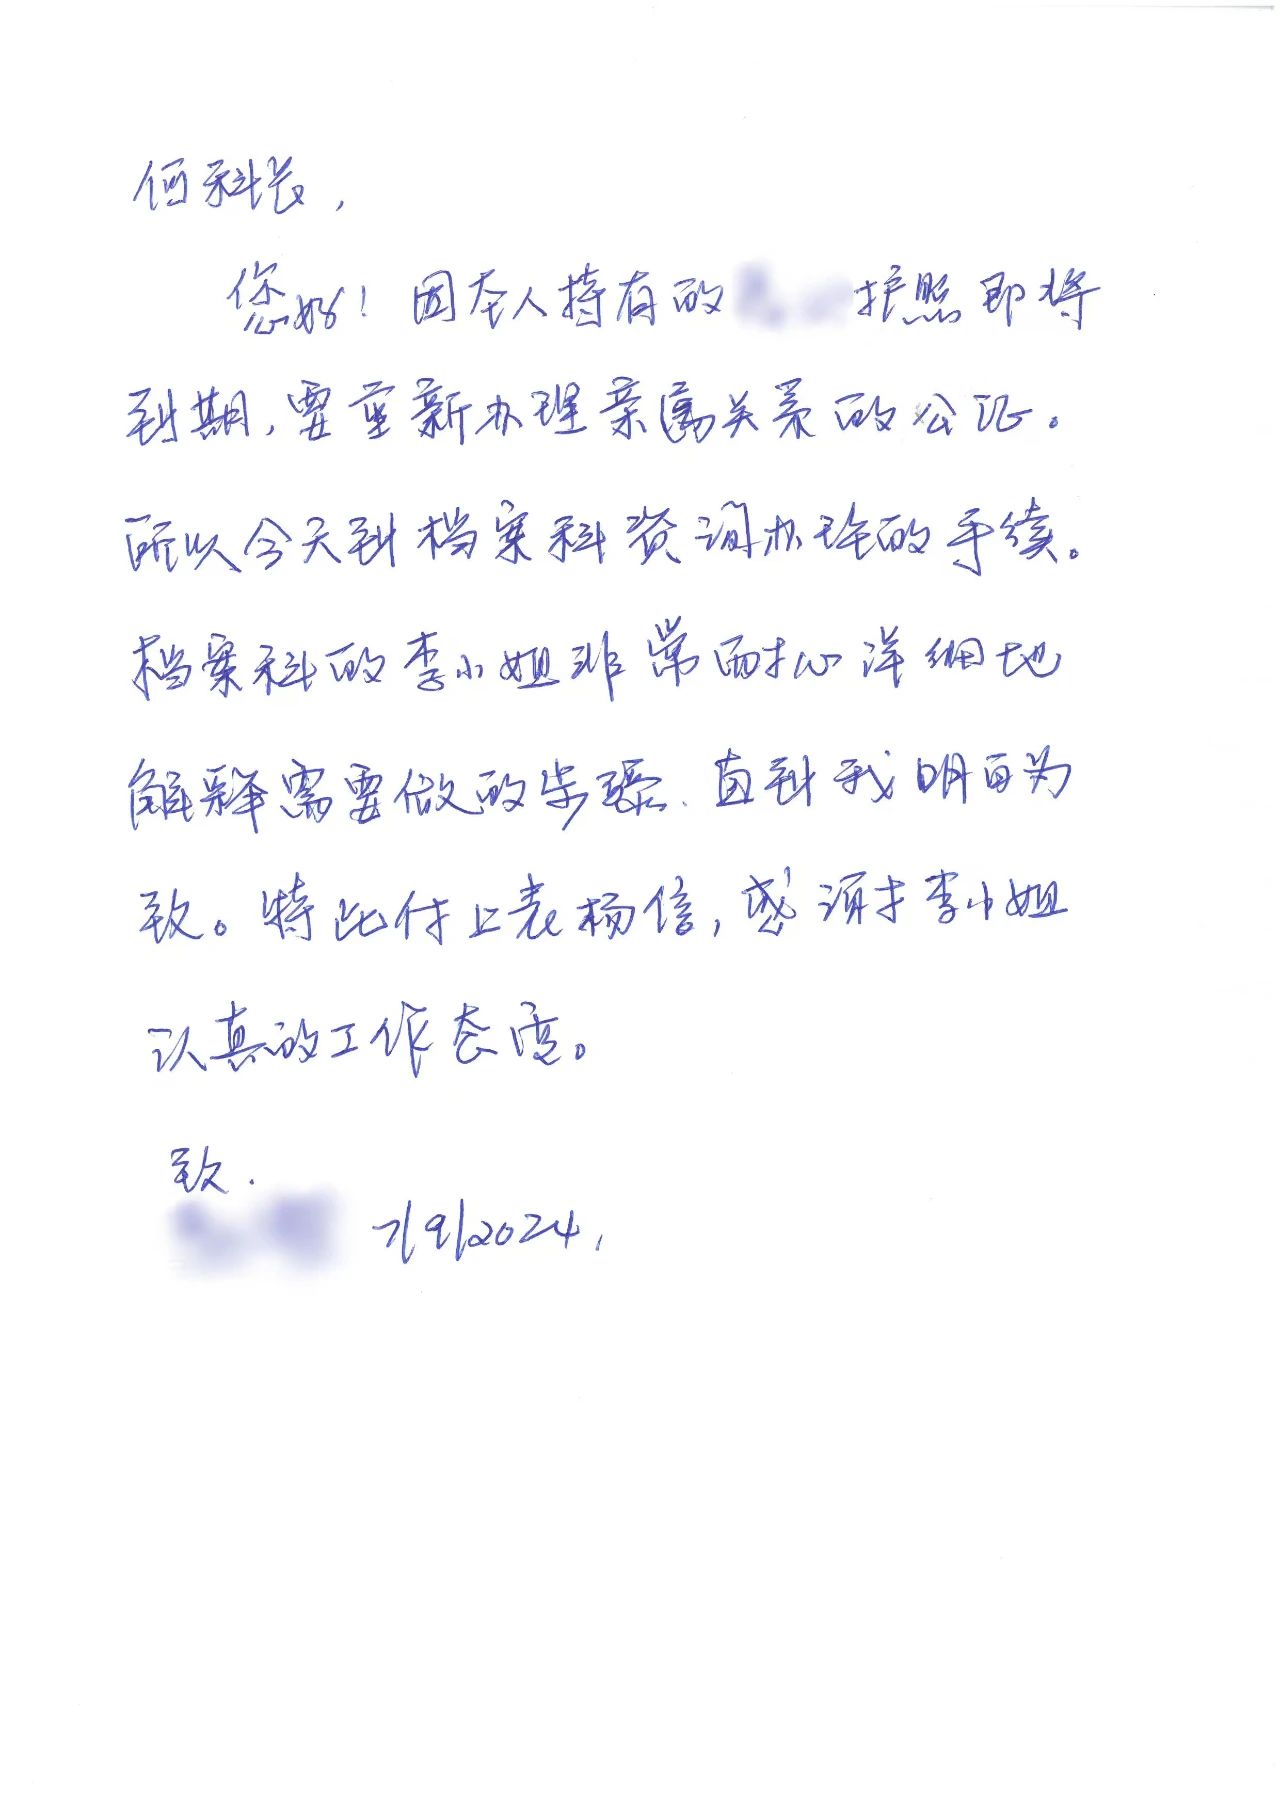 何科长，
您好！因本人持有的 护照即将
到期，要重新办理亲属关系的公证。
所以今天到档案科资询办理的手续。
档案科的李小姐非常耐心详细地
解释需要做的步骤．直到我明白为
致。特此付上表杨信，感谢李小姐
认真的工作态度。
致．
7/9/2024，